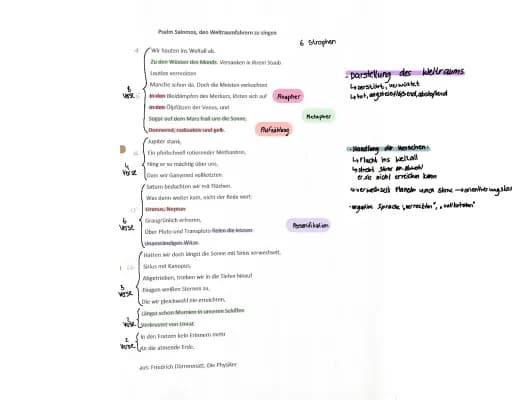 Psalm Salomos, den Weltraumfahrern zu singen
6 Strophen
Wir hauten ins Weltall ab.
Zu den Wüsten des Monds. Versanken in ihrem Staub
Lautlos verreckten
Manche schon da. Doch die Meisten verkochten
In den Bleidämpfen des Merkurs, lösten sich auf
Anapher
In den Ölpfützen der Venus, und
Sogar auf dem Mars fraß uns die Sonne,
Metapher
Donnernd, radioaktiv und gelb.
Aufzählung
Jupiter stank,
Ein pfeilschnell rotierender Methanbrei,
Hing er so mächtig über uns,
Dass wir Ganymed vollkotzten.
Saturn bedachten wir mit Flüchen.
Was dann weiter kam, nicht der Rede wert:
Uranus, Neptun
Graugrünlich erfroren,
Über Pluto und Transpluto fielen die letzten
Personifikation
Unanständigen Witze.
Hatten wir doch längst die Sonne mit Sirius verwechselt,
Sirius mit Kanopus,
Abgetrieben, trieben wir in die Tiefen hinauf
Einigen weißen Sternen zu,
Die wir gleichwohl nie erreichten,
Längst schon Mumien in unseren Schiffen
Verkrustet von Unrat.
In den Fratzen kein Erinnern mehr
An die atmende Erde.
aus: Friedrich Dürrenmatt, Die Physiker
8
Verse
4
Verse
6
Verse
5
Verse
2
Verse
2
Verse
- Darstellung des Weltraums
↳ zerstört, verwüstet
- Handlung der Menschen
↳ Flucht ins Weltall